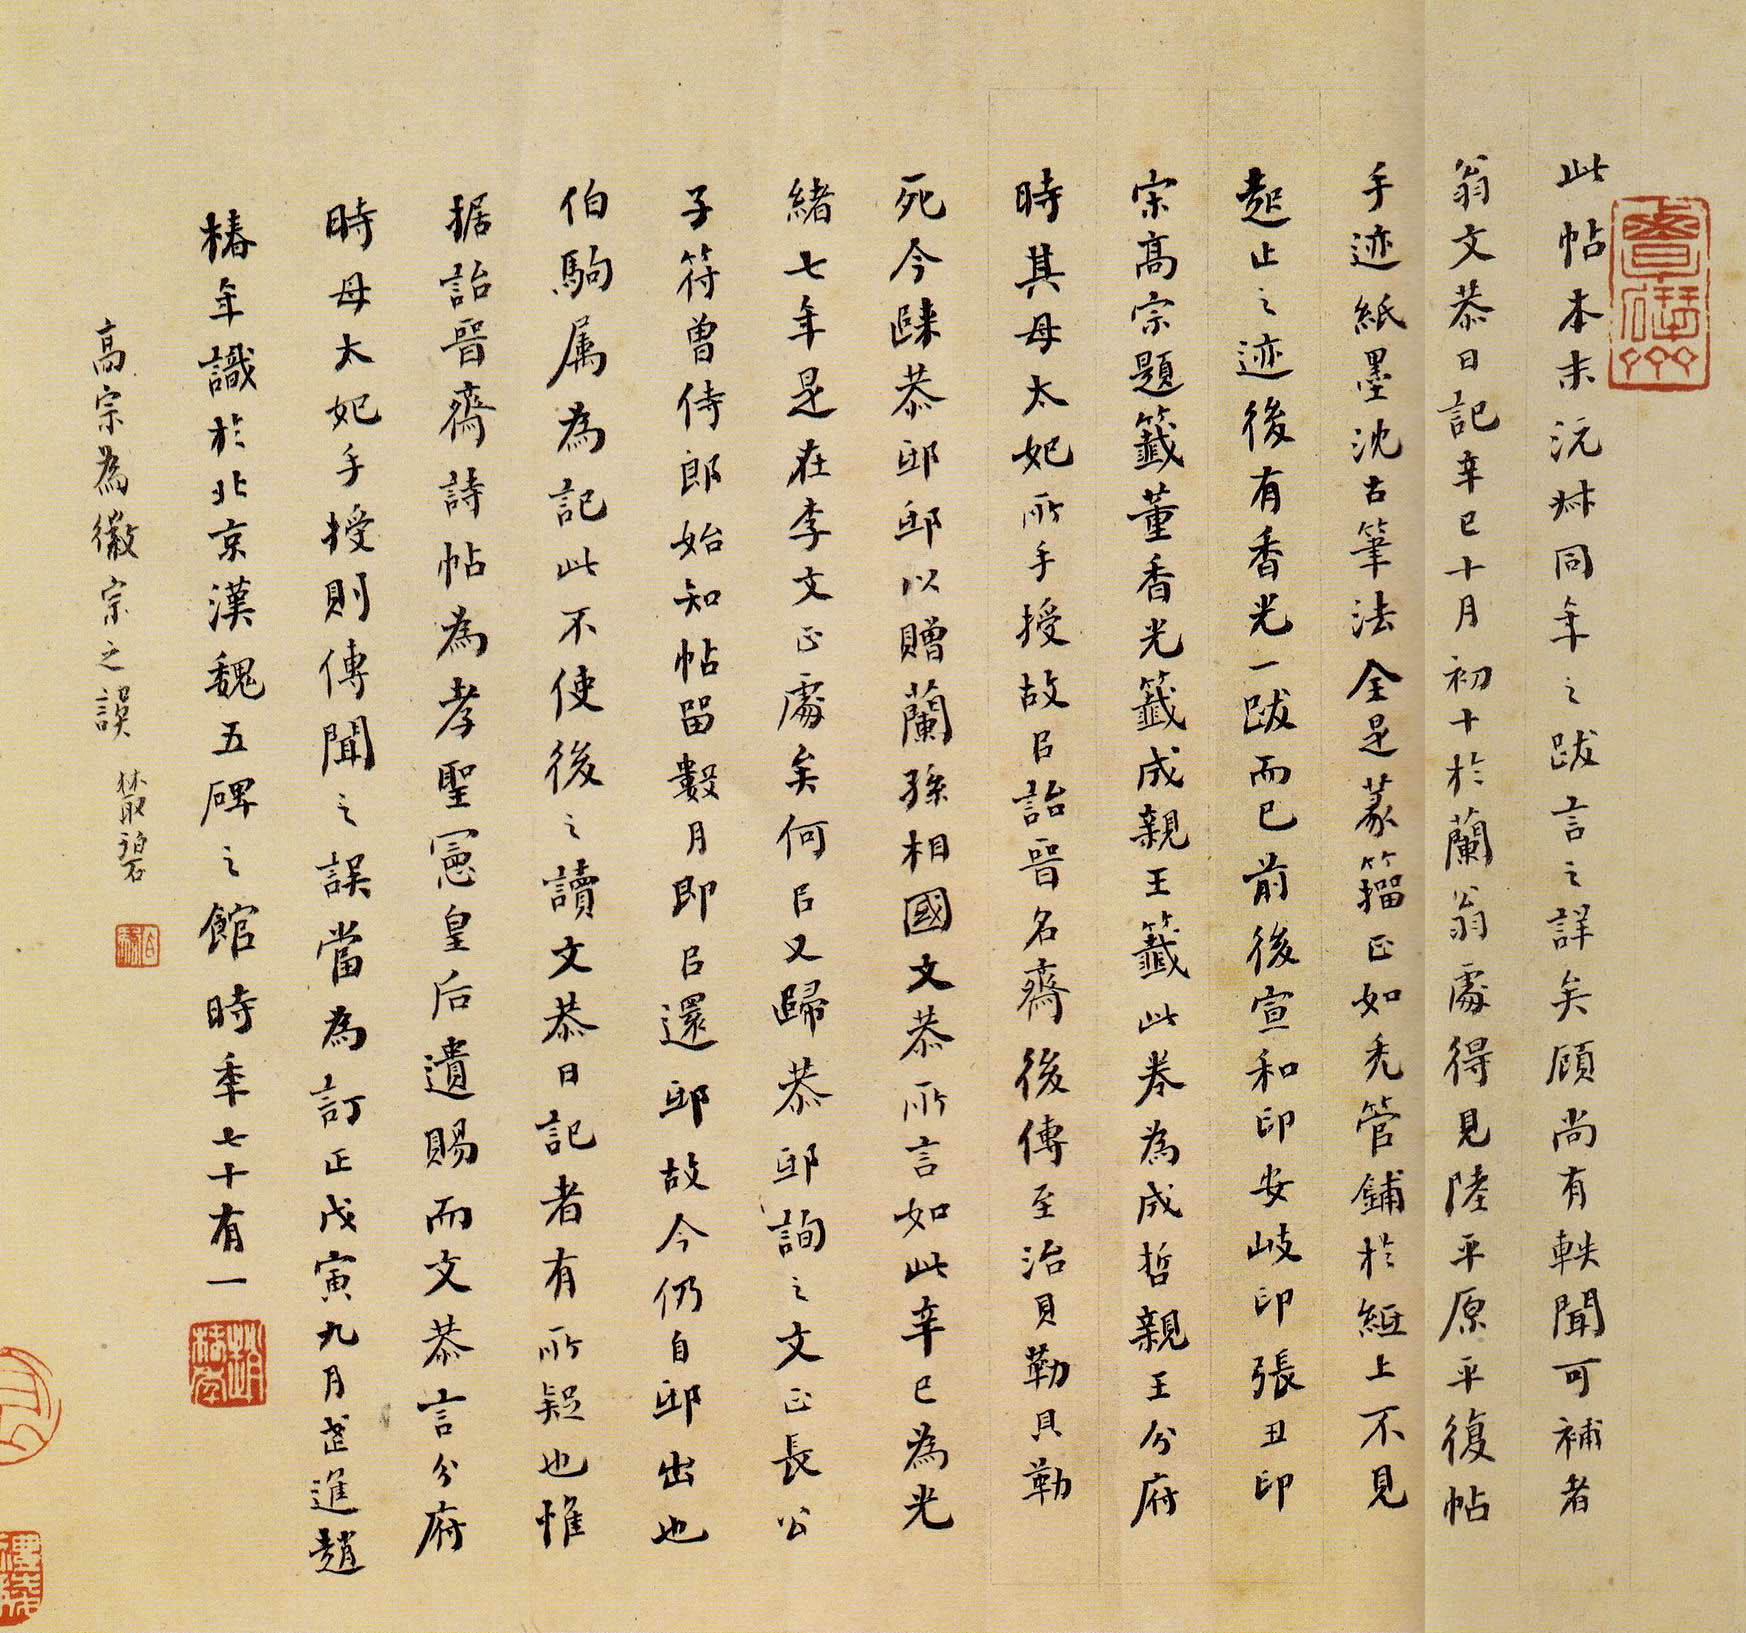 此帖本末沅叔同年之跋言之詳矣顧尚有軼聞可補者
翁文恭日記辛巳十月初十於蘭翁處得見陸平原平復帖
手迹紙墨沈古筆法全是篆籀正如禿管鋪於紙上不見
起止之迹後有香光一跋而已前後宣和印安岐印張丑印
宗高宗題籤董香光籤成親王籤此卷為成哲親王分府
時其母太妃所手授故㠯詒晉名齋後傳至治貝勒貝勒
死今歸恭邸邸以贈蘭孫相國文恭所言如此辛巳為光
緒七年是在李文正處矣何㠯又歸恭邸詢之文正長公
子符曾侍郎始知帖留數月即㠯還邸故今仍自邸出也
伯駒屬為記此不使後之讀文恭日記者有所疑也惟
据詒晉齋詩帖為孝聖憲皇后遺賜而文恭言分府
時母太妃手授則傳聞之誤當為訂正戊寅九月武進趙
椿年識於北京漢魏五碑之館時年七十有一
高宗為徽宗之誤 叢碧